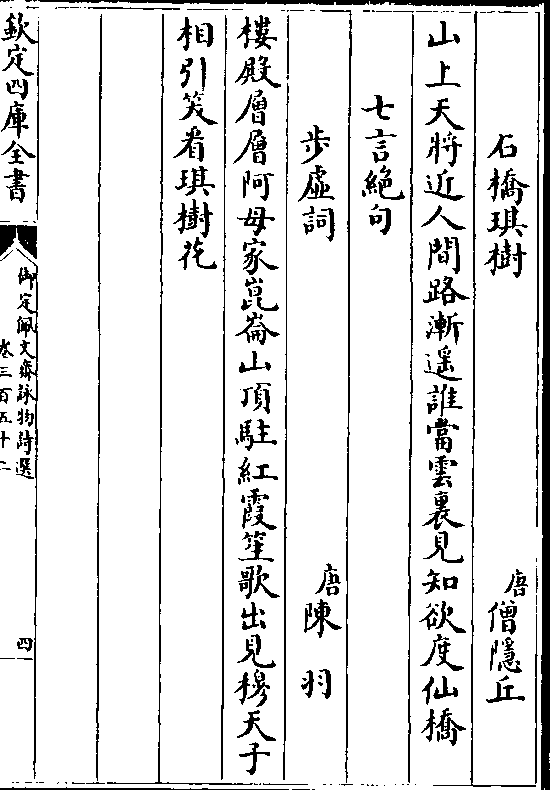 石橋琪樹 唐僧隱丘
山上天將近人間路漸遥誰當雲裏見知欲度仙橋
七言絶句
歩虛詞 唐陳羽
樓殿層層阿母家崑崙山頂駐紅霞笙歌出見穆天子
相引笑看琪樹花
欽定四庫全書
御定佩文齋詠物詩選
卷三百五十二
四